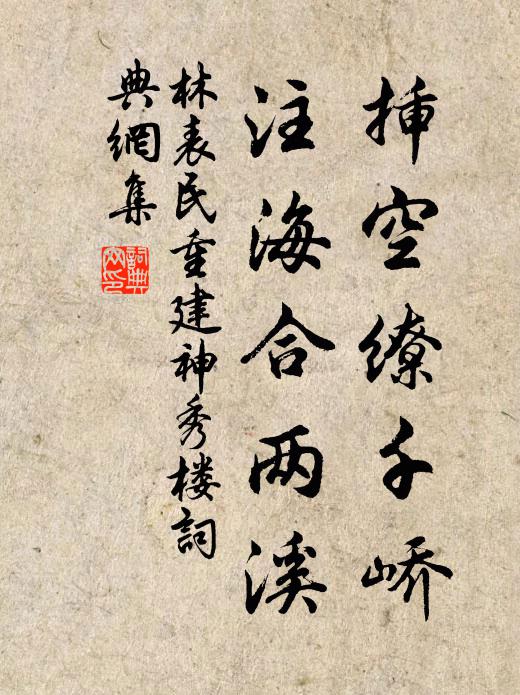 插空缭千峤
注海合两溪
林表民重建神秀楼詞
典網集
詞典
网印